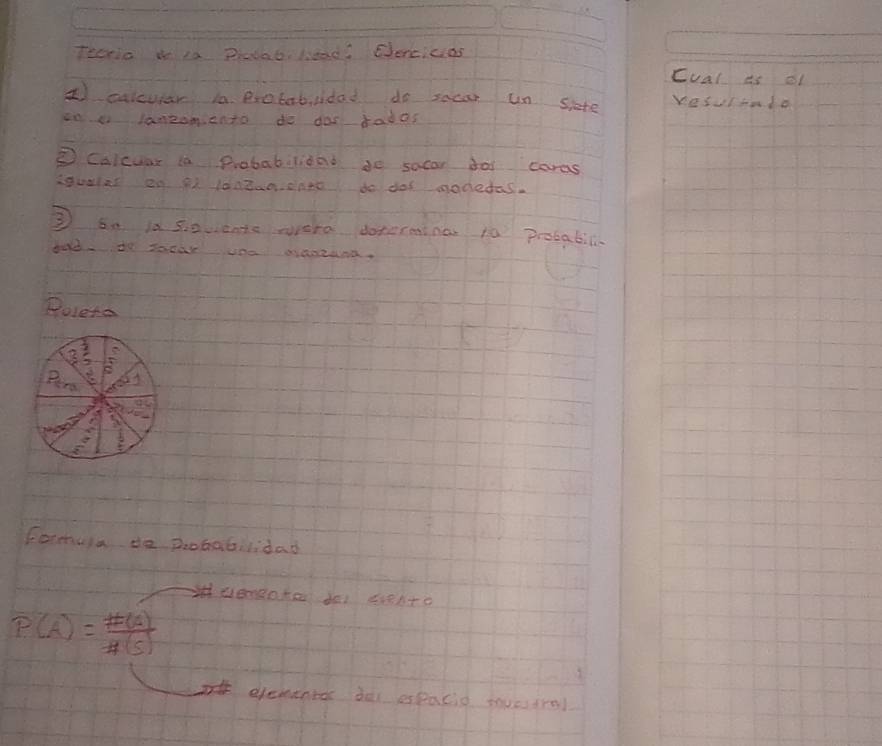 Teoria de la Probabilidad: Ejercicios
1) calcular la Probabilidad de sacar un siete
en el lanzamiento de dos dados
2) Calcular la Probabilidad de sacar dos caras
iguales en el lanzamiento de dos monedas.
3) en la siguiente ruleta determinar la Probabili-
dad de sacar una manzana.
Ruleta
Pera
Formula de Probabilidad
# elementos del evento
P(A) = #(A)
#(S)
# elementos del espacio muestral
Cual es el
resultado